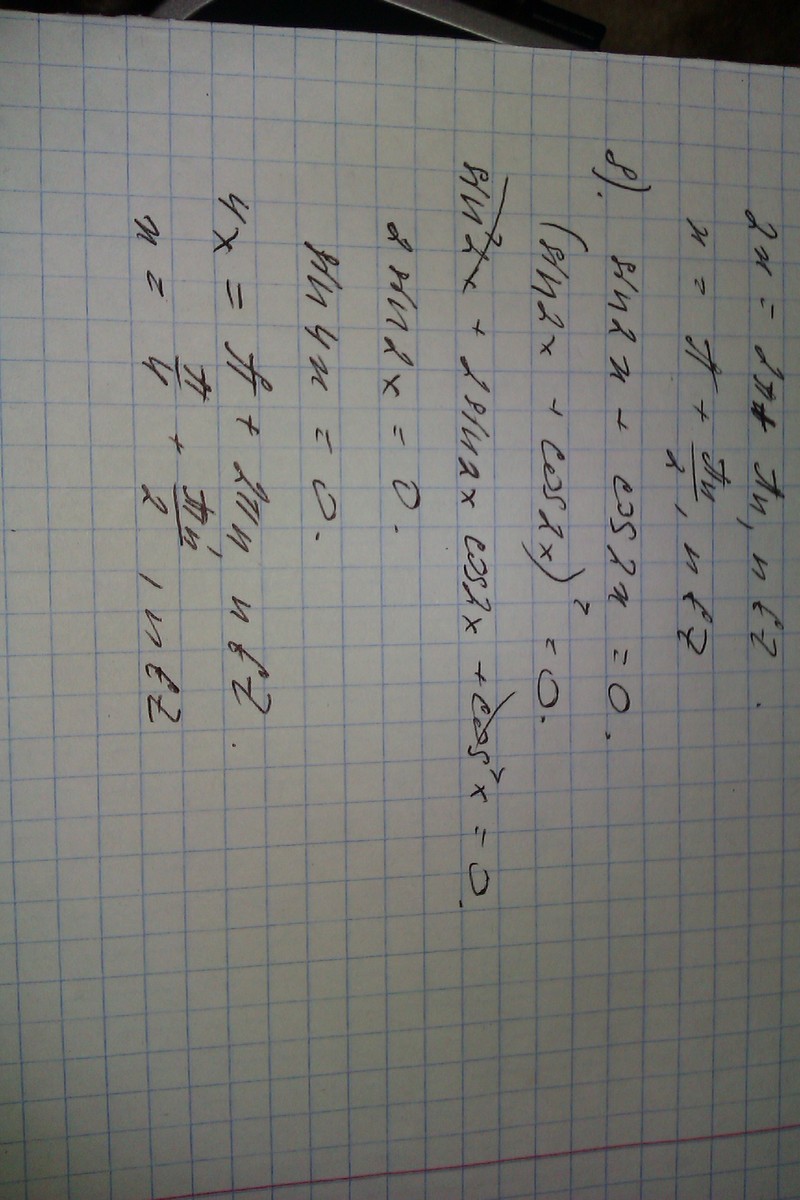 2x = 2π + πn, n ∈ Z.
x = π + πn/2, n ∈ Z
8). sin2x + cos2x = 0.
(sin2x + cos2x)² = 0.
sin²x + 2sin2x cos2x + cos²x = 0.
2 sin2x = 0.
sin4x = 0.
4x = π + 2πn, n ∈ Z.
x = π/4 + πn/2, n ∈ Z